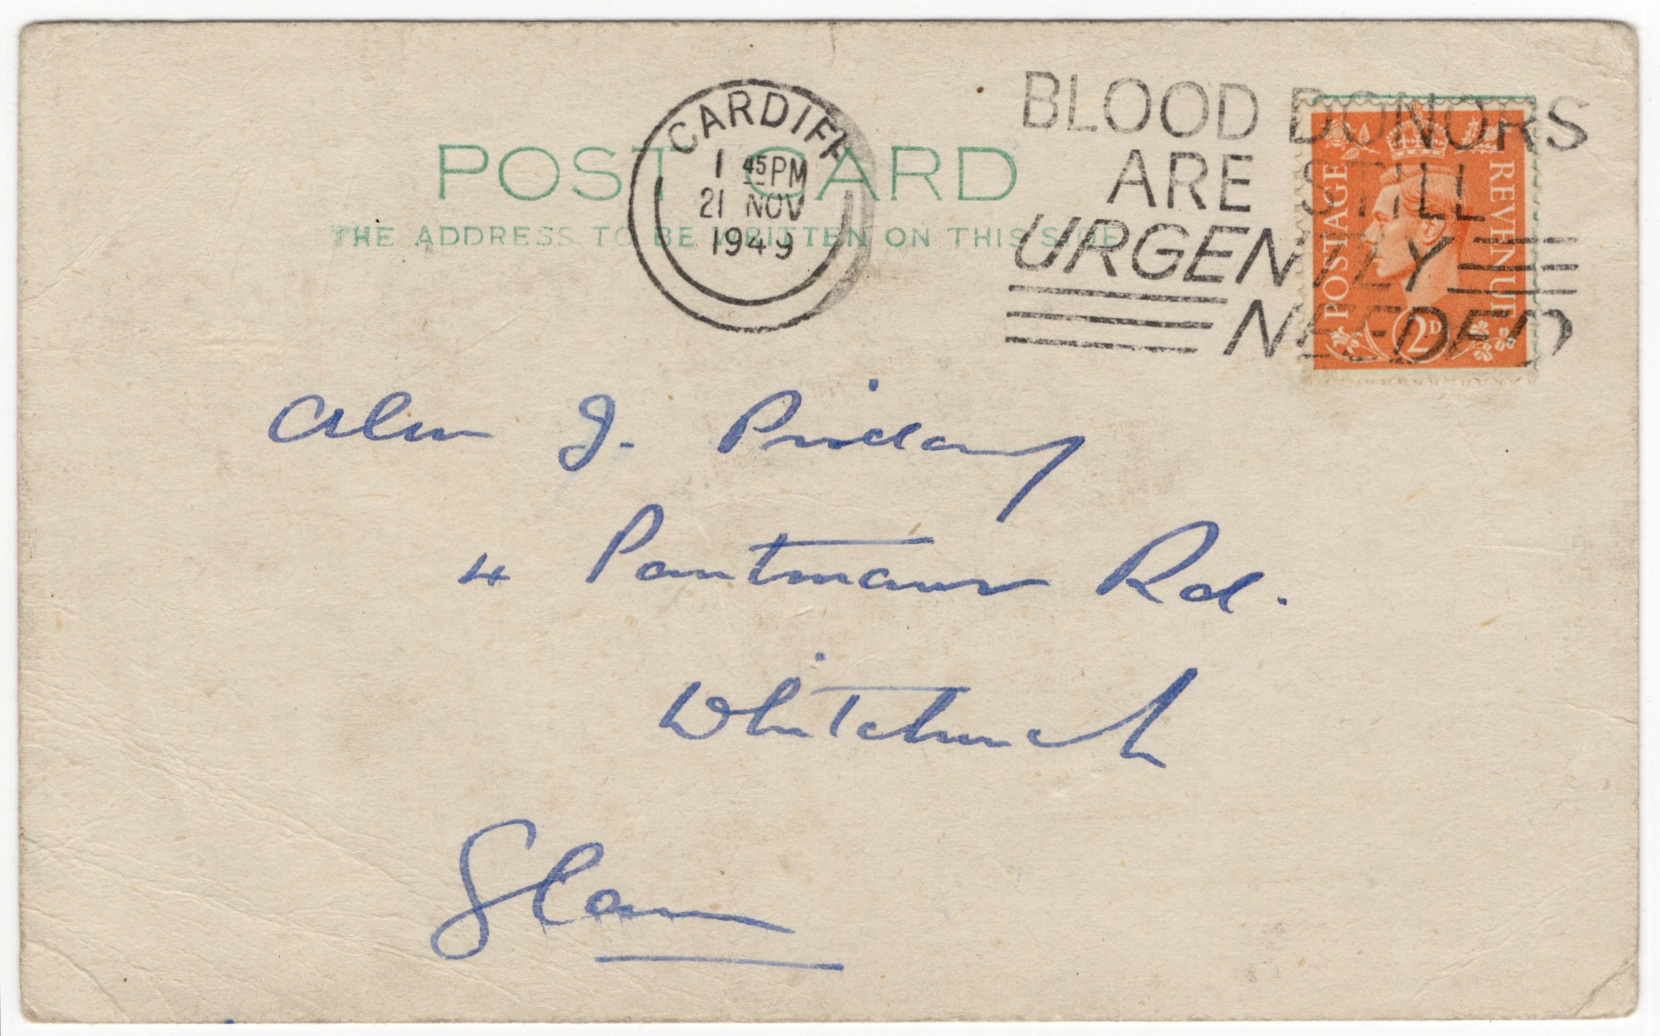 POST CARD
THE ADDRESS TO BE WRITTEN ON THIS SIDE
CARDIFF
1 45 PM
21 NOV
1949
BLOOD DONORS
ARE STILL
URGENTLY
NEEDED
POSTAGE
REVENUE
2D
Alan J.
4 Pantmawr Rd.
Whitchurch
Glam